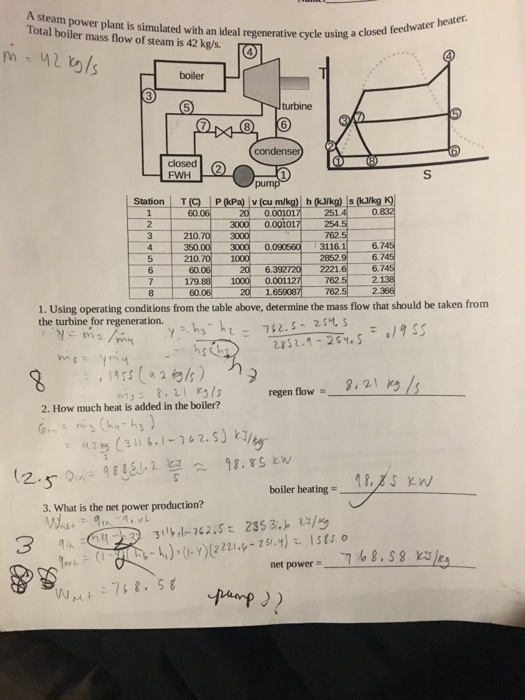 A steam power plant is simulated with an ideal regenerative cycle using a closed feedwater heater.
Total boiler mass flow of steam is 42 kg/s.
ṁ = 42 kg/s
4
boiler
T
4
3
5
turbine
7
8
6
3
7
5
condenser
2
1
8
6
closed
FWH
2
1
pump
S
Station T (C) P (kPa) v (cu m/kg) h (kJ/kg) s (kJ/kg K)
1 60.06 20 0.001017 251.4 0.832
2 3000 0.001017 254.5
3 210.70 3000 762.5
4 350.00 3000 0.090560 3116.1 6.745
5 210.70 1000 2852.9 6.745
6 60.06 20 6.392720 2221.6 6.745
7 179.88 1000 0.001127 762.5 2.138
8 60.06 20 1.659087 762.5 2.366
1. Using operating conditions from the table above, determine the mass flow that should be taken from
the turbine for regeneration.
y = ṁ5 / ṁ4 y = h3 - h2 = 762.5 - 254.5 = .1955
h5 h2 2852.9 - 254.5
h2
ṁ5 = y ṁ4
= .1955 (42 kg/s)
8
ṁ5 = 8.21 kg/s
regen flow = 8.21 kg/s
2. How much heat is added in the boiler?
(h4 - h3)
= 42 kg/s (3116.1 - 762.5) kJ/kg
12.5
≈ 98.85 kW
boiler heating = 98.85 kW
3. What is the net power production?
Wnet = qin - qout
qin = h4 - h3 = 3116.1 - 762.5 = 2353.6 kJ/kg
3
qout = (1-y)(h6 - h1) = (1-y)(2221.6 - 251.4) = 1585.0
net power = 768.58 kJ/kg
Wnet = 768.58
pump ??